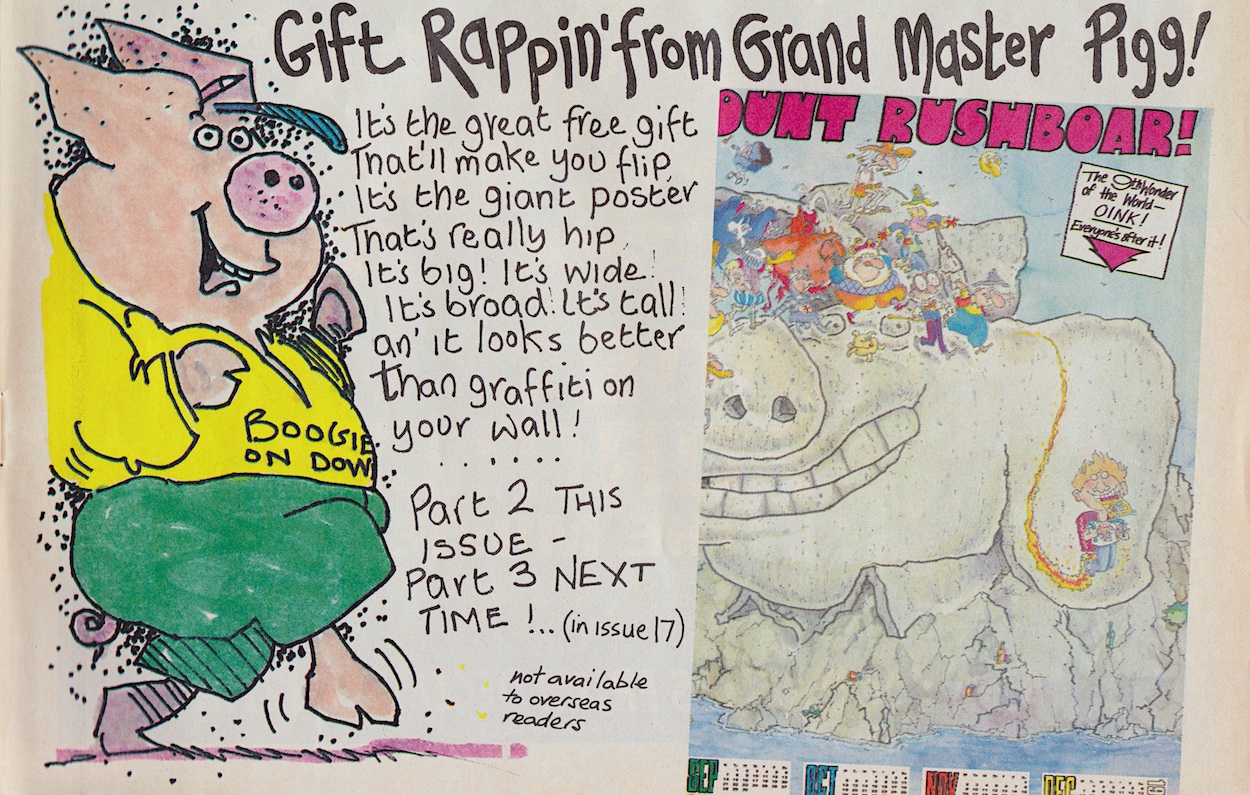 Gift Rappin' from Grand Master Pigg!
It's the great free gift
That'll make you flip,
It's the giant poster
That's really hip,
It's big! It's wide!
It's broad! It's tall!
an' it looks better
than graffiti on
your wall!
.......
Part 2 THIS
ISSUE -
Part 3 NEXT
TIME!... (in issue 17)
not available
to overseas
readers
BOOGIE
ON DOW
OUNT RUSHBOAR!
The 9th Wonder
of the World—
OINK!
Everyone's after it!
SEP OCT NOV DEC 19